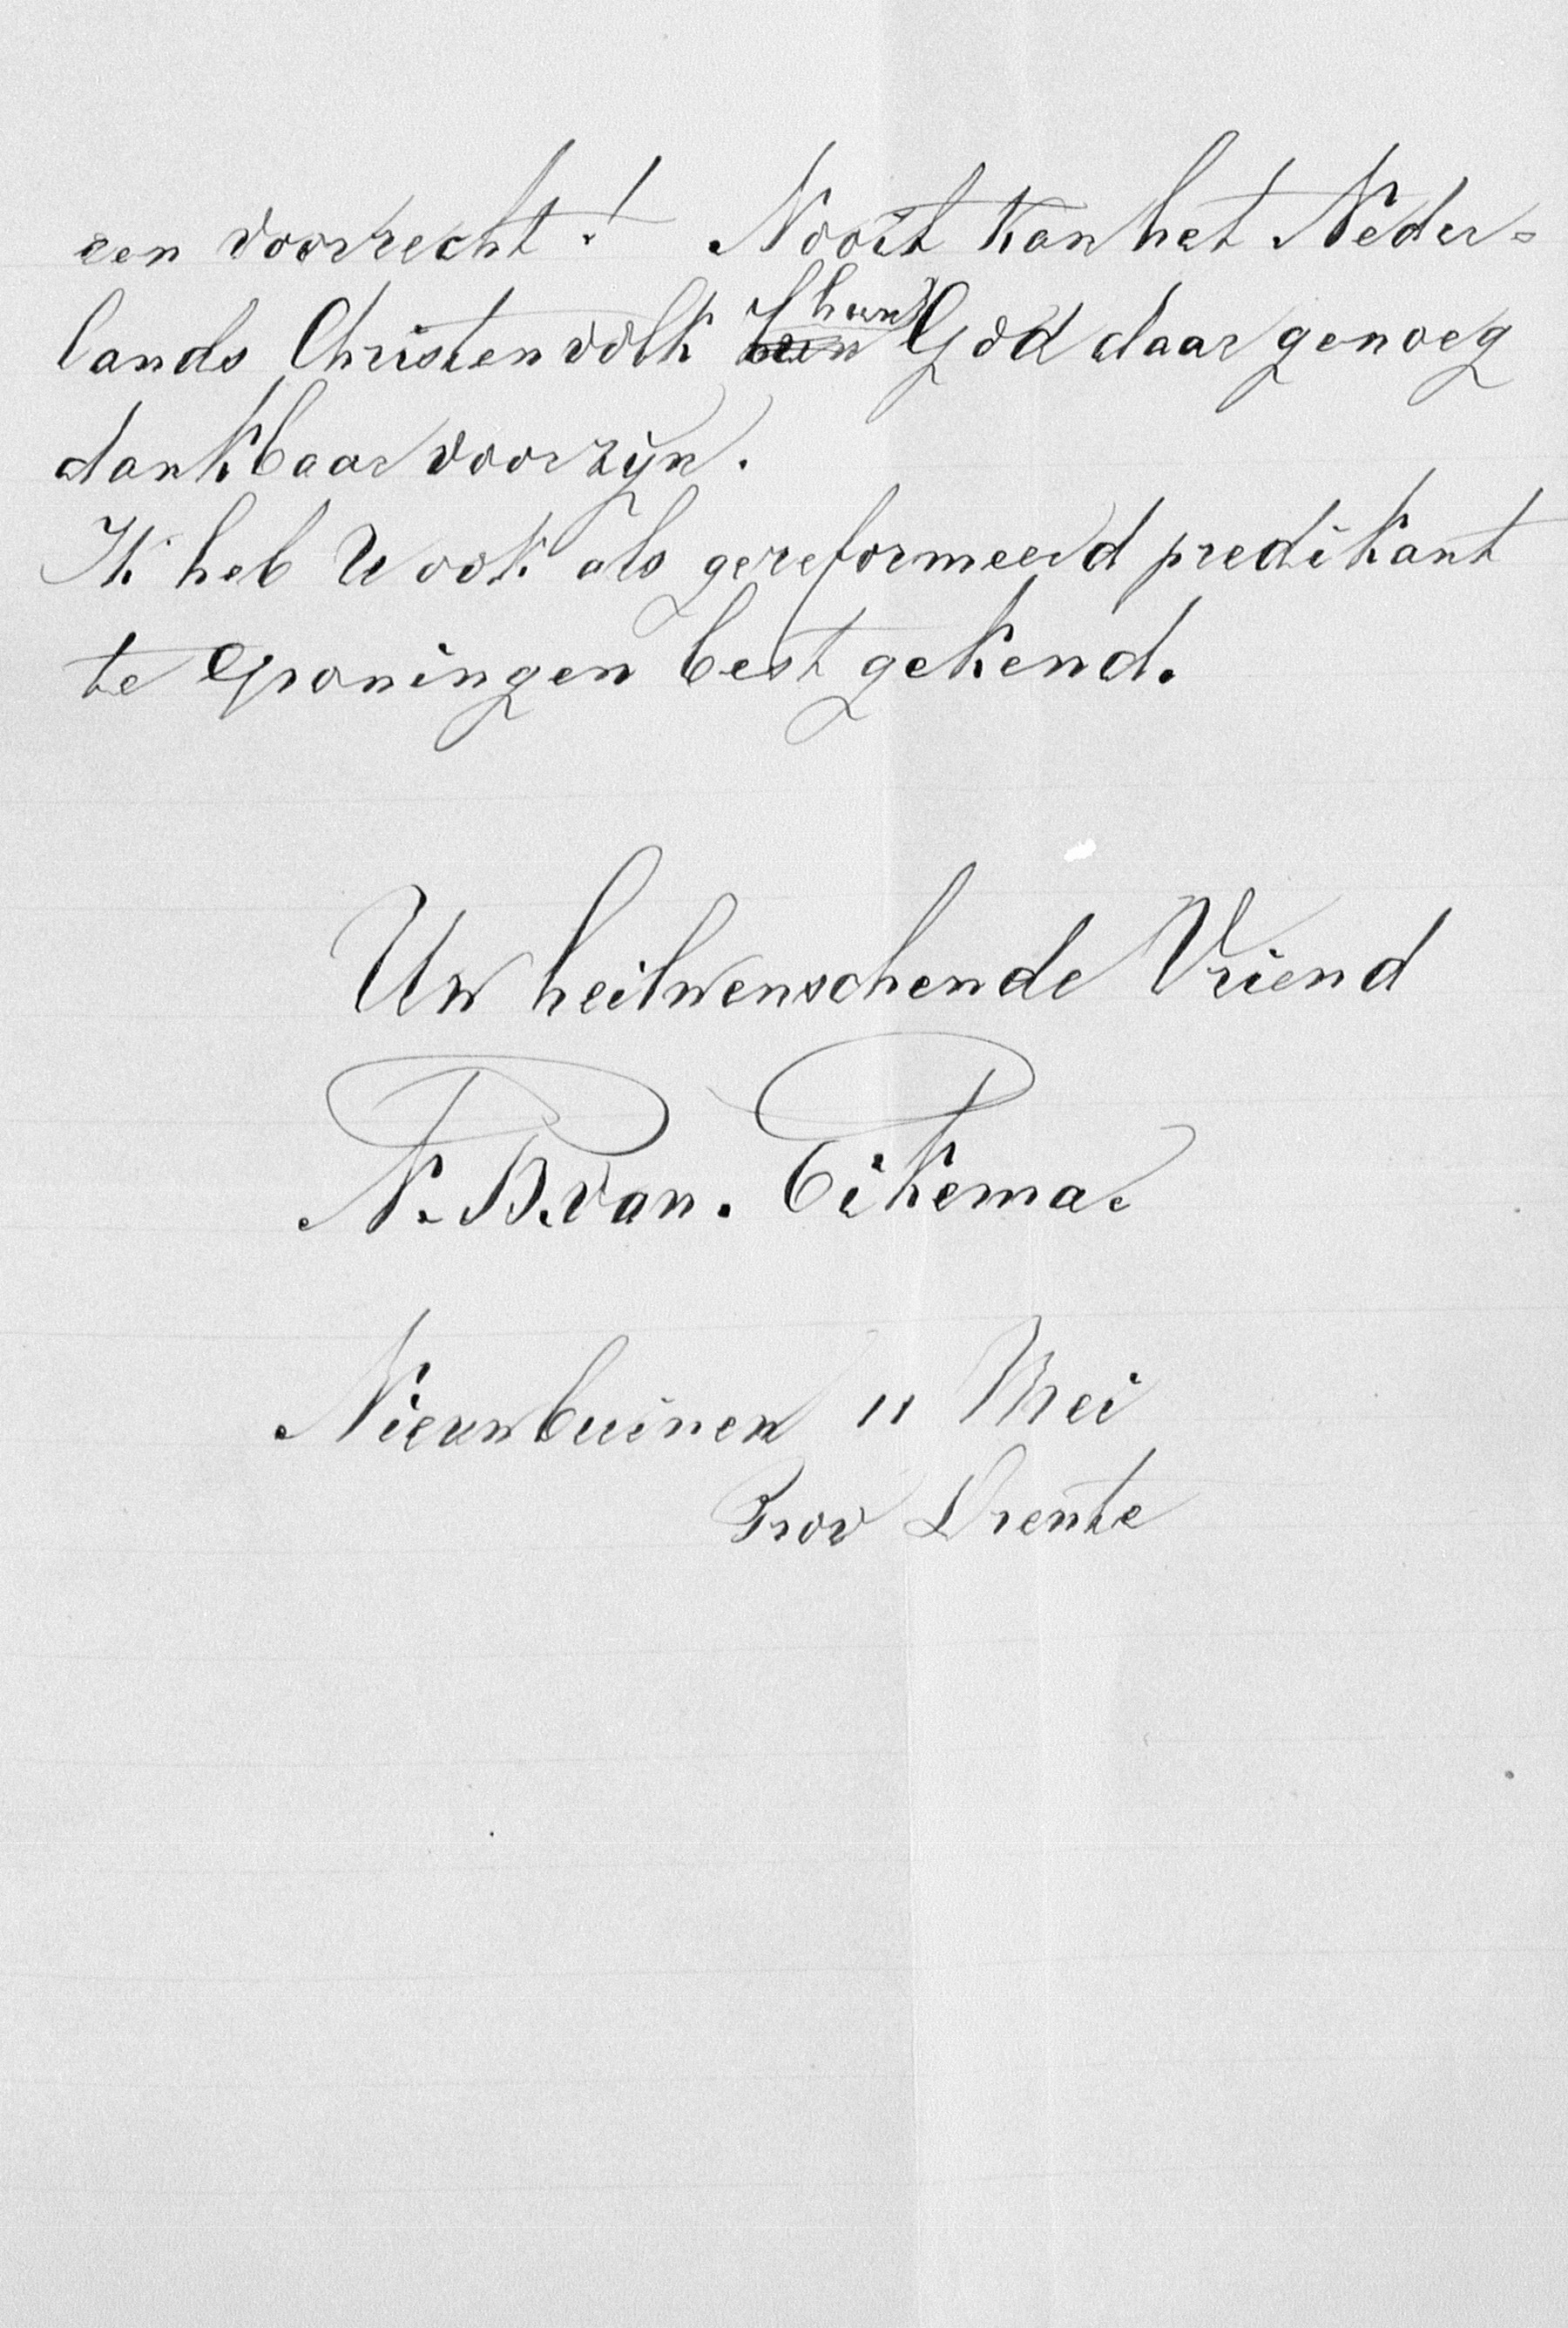 een voorrecht! Nooit kan het Neder=
lands Christenvolk hun God daar genoeg
dankbaar voor zijn.
Ik heb U ook als gereformeerd predikant
te Groningen best gekend.
Uw heilwenschende Vriend
N. B. van. Eikema.
Nieuwbuinen 11 Mei
Prov Drente